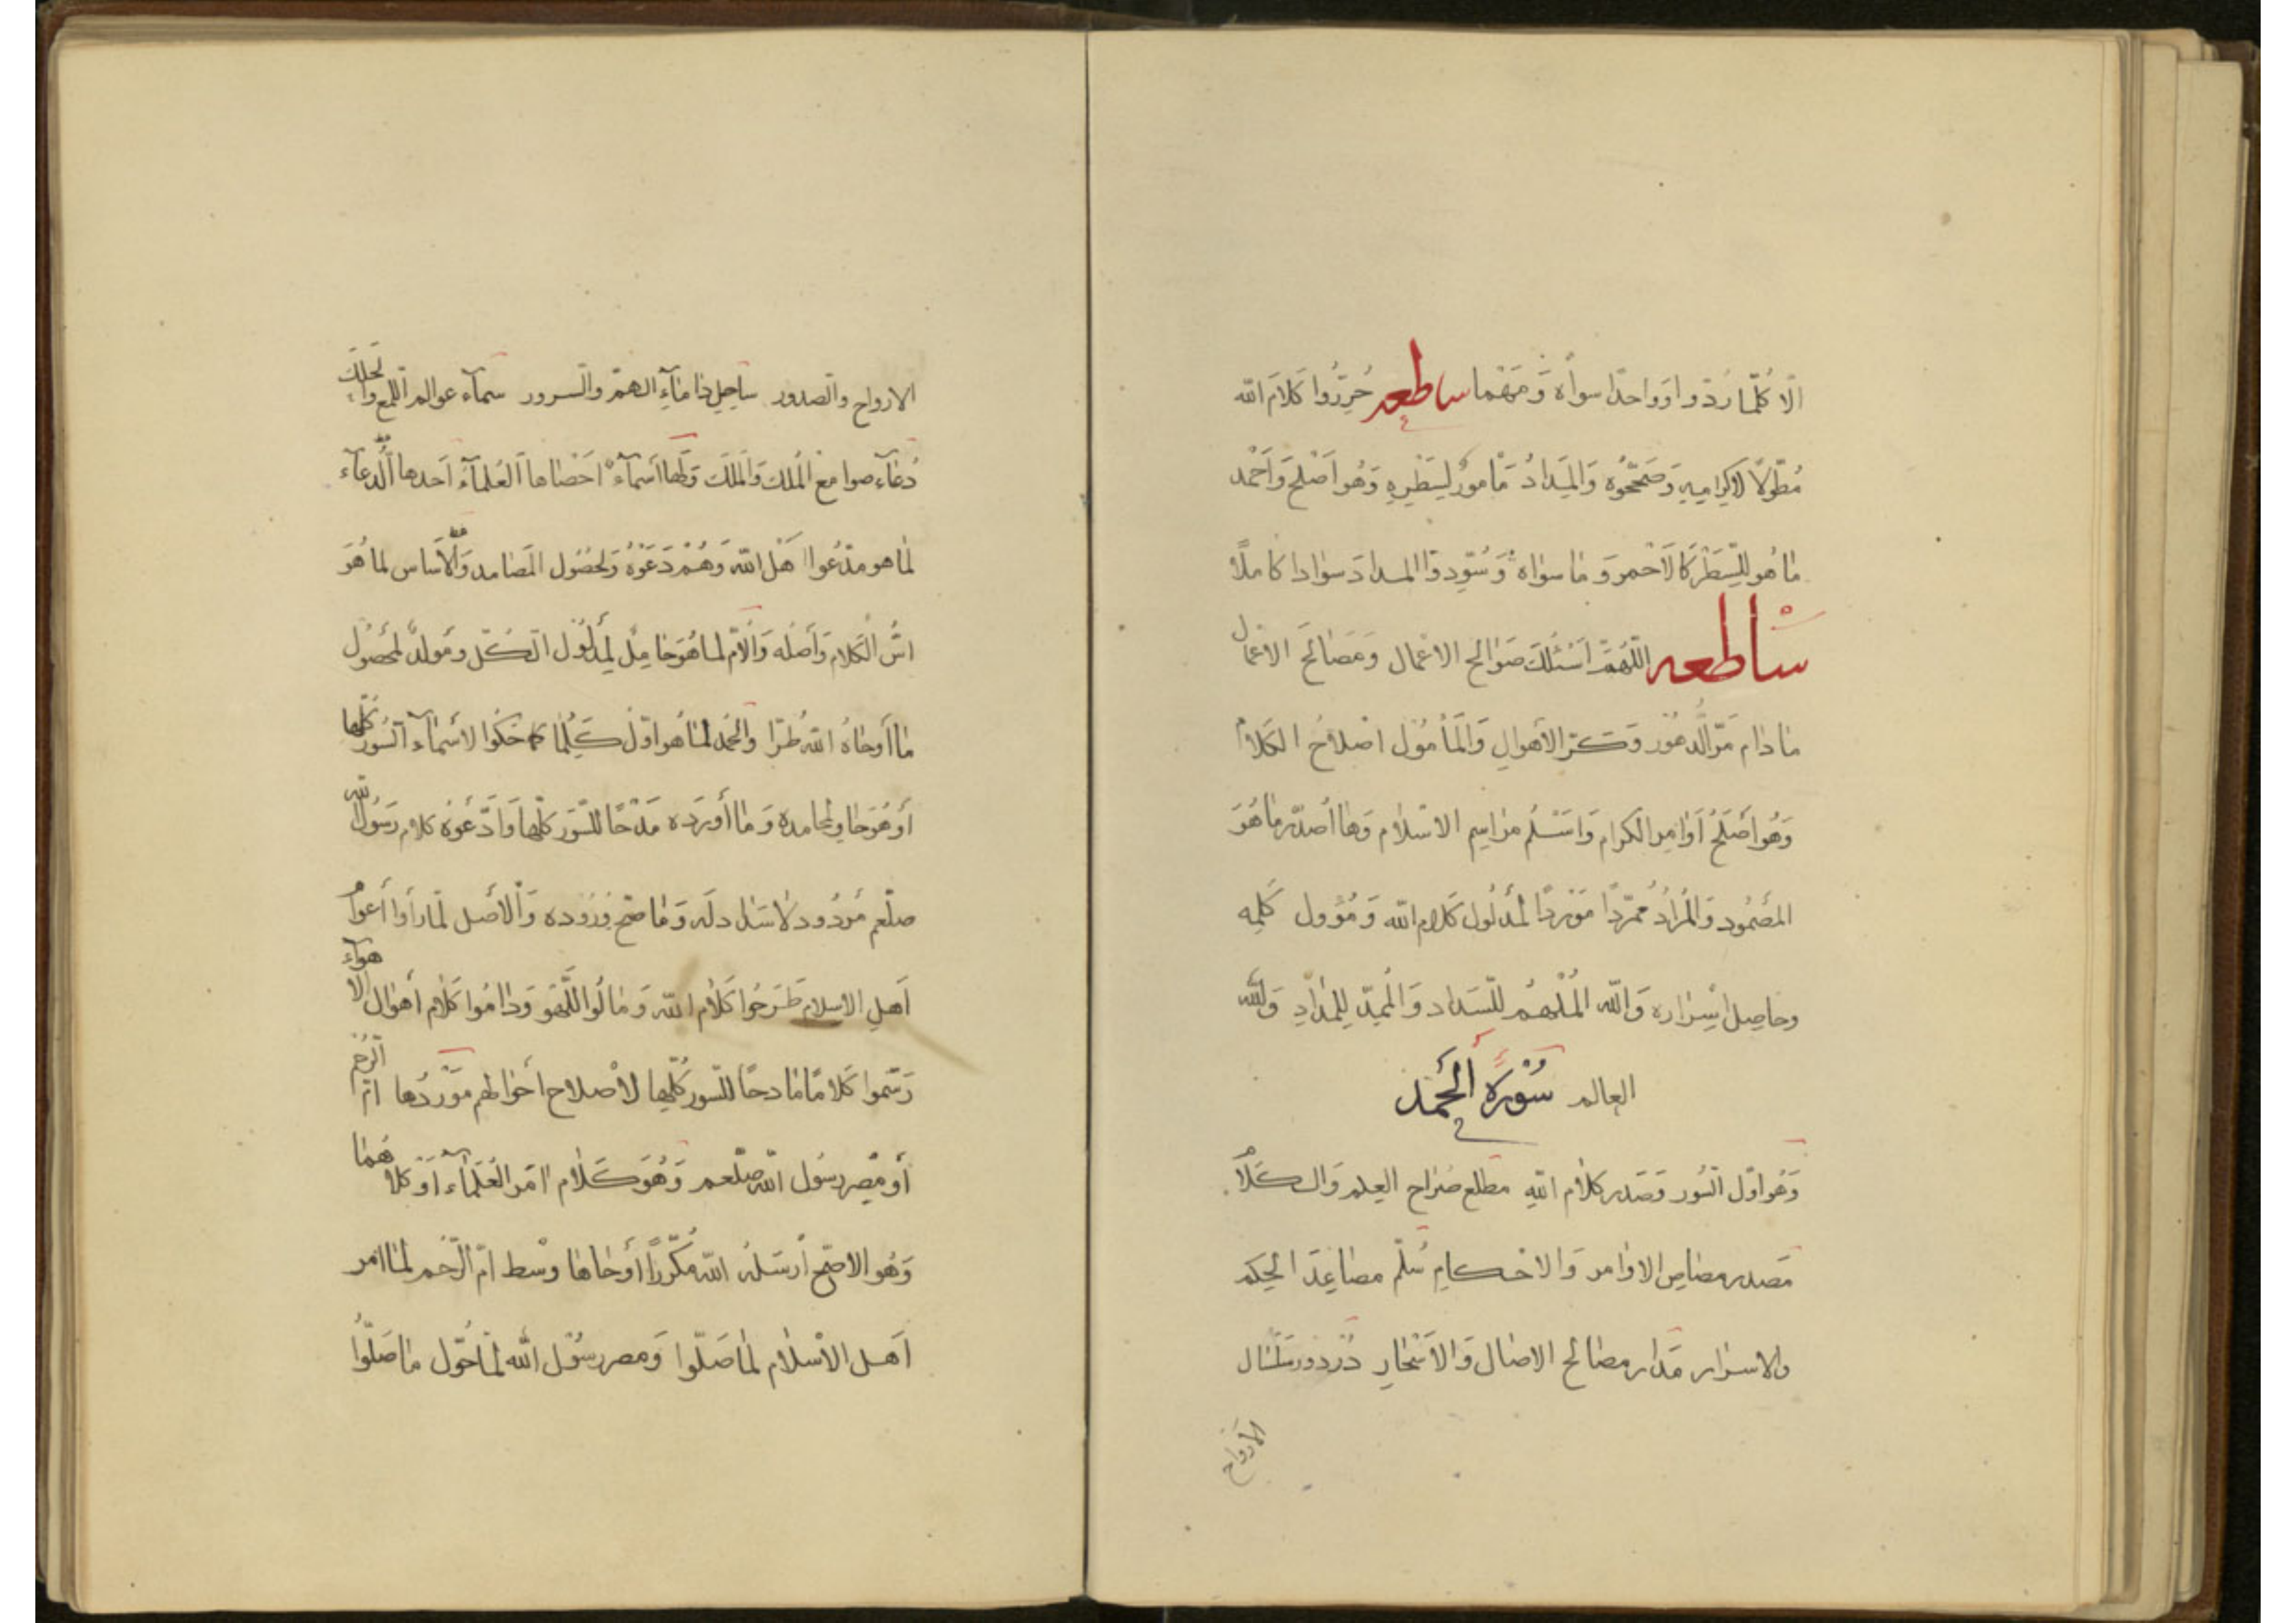 الّا كُلّمَا رَدّوا اَو واحدًا سواه وَمَهْمَا ساطعه حُرِّرُوا كَلامَ الله
مُطَوّلًا لاكرامه وَصَحّحُوه وَالمِدَادُ مَأمورٌ لِسَطْرِه وَهُوَ اَصْلَح وَاَحْمَد
مَا هُو للسَّطْر كَالاَحْمَر وَمَا سواه وَسُوّد وَالمدادَ سوَادا كَامِلًا
سَاطعه اللّهُمّ اَسْئلُكَ صَوَالِح الاعمَال وَمَصَالِحَ الاعمال
مَا دام مَرّ الدّهُور وَكرّ الأهوالِ وَالمَأمُول اصْلَاحُ الكَلام
وَهُو اَصْلَحُ اَوَامِر الكرام وَاسْلَم مراسِم الاسْلام وَها أُصَدّر مَا هُوَ
المَصْمُود وَالمُرادُ مُمَرّدًا مُوَرِدًا لمدْلُول كَلام الله وَمُؤول كَلِمِه
وحَاصِل اسْرَاره وَالله المُلْهِمُ للسَّداد وَالمُمِدّ لِلمدَادِ وَلله
العالم سُوْرَة الحَمْد
وَهُوَ اوّل السُّور وَصَدر كَلام الله مطلع صراح العِلم وَالكَلام
مَصدر مصاص الاوامر وَالاحكامِ سُلّم مصاعِد الحِكم
والاسرار مَدار مصالح الاصال وَالاَسْحَارِ دُرْدور سلسَال
الاَروَاح
الارواح والصدور ساحِل دَامَاءِ الهمّ والسرور سمآء عوالم اللمع والحلك
دُعَاء صوامع المُلك وَالمَلَك وَلَهَا اَسمآء اَحْصَاهَا العُلَمآء اَحَدها الدُّعآء
لمَا هو مدْعُوا اَهْل الله وَهُمْ دَعَوْهُ وَلحُصُول المَصَامد وَالاَساس لما هُوَ
اسُّ الْكَلام وَأَصْلُه وَالاُمّ لما هُوَ حَامِلٌ لِمدلُول الكُلّ ومُولدٌ لمحصُول
مَا أَوحَاهُ اللهُ طُرّا والحَمْد لمَا هُو اوّلُ كَلِمهَا كَمَا حَكَوا لاسْمَآء السُّور كُلّها
أَو هُوَ حَاوٍ لمحامده وَمَا أَوْرَده مَدْحًا للسُّوَر كلّهَا وَادّعَوْه كَلام رَسُول الله
صلعم مَردُود لا سَدَاد لَه وَمَا صَحّ وُرُوده وَالأصل لمَا رَأوا أعوام
اَهلِ الاسلام طَرَحُوا كَلامَ الله وَمَالُوا اللّهْو وَدَامُوا كَلام أَهوَال الاهوآء
رَسَموا كَلامًا مَادحًا للسّور كُلّهَا لاصْلاح احْوَالهم مَوْرِدُهَا امّ الرُّحم
أَو مِصر رسُول الله صلعم وَهُوَ كَلام امّر العُلَمَاء أَوْ كِلاهُمَا
وَهُو الاصَحّ ارسَلَهُ الله مُكَرّرًا أَوْحَاهَا وسْط امّ الرّحم لمَا امر
اَهل الاسْلام لمَا صَلّوا وَمصر رسُول الله لمَا حُوّل مَا صَلّوا